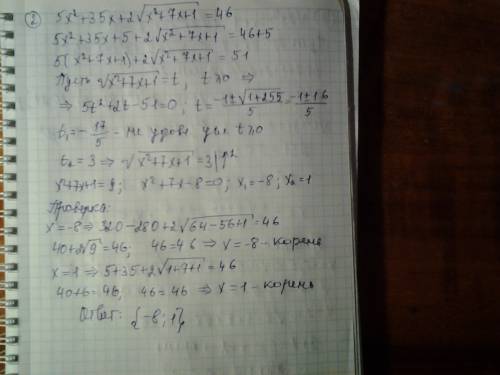 ② 5x²+35x+2√(x²+7x+1)=46
5x²+35x+5+2√(x²+7x+1)=46+5
5(x²+7x+1)+2√(x²+7x+1)=51
Пусть √(x²+7x+1)=t, t≥0 ⇒
⇒ 5t²+2t-51=0; t=(-1±√(1+255))/5=(-1±16)/5
t₁=-17/5 - не удовл усл t≥0
t₂=3 ⇒ √(x²+7x+1)=3|↑²
x²+7x+1=9; x²+7x-8=0; x₁=-8; x₂=1
Проверка:
x=-8 ⇒ 320-280+2√(64-56+1)=46
40+2√9=46; 46=46 ⇒ x=-8 - корень
x=1 ⇒ 5+35+2√(1+7+1)=46
40+6=46, 46=46 ⇒ x=1 - корень
Ответ: {-8; 1}